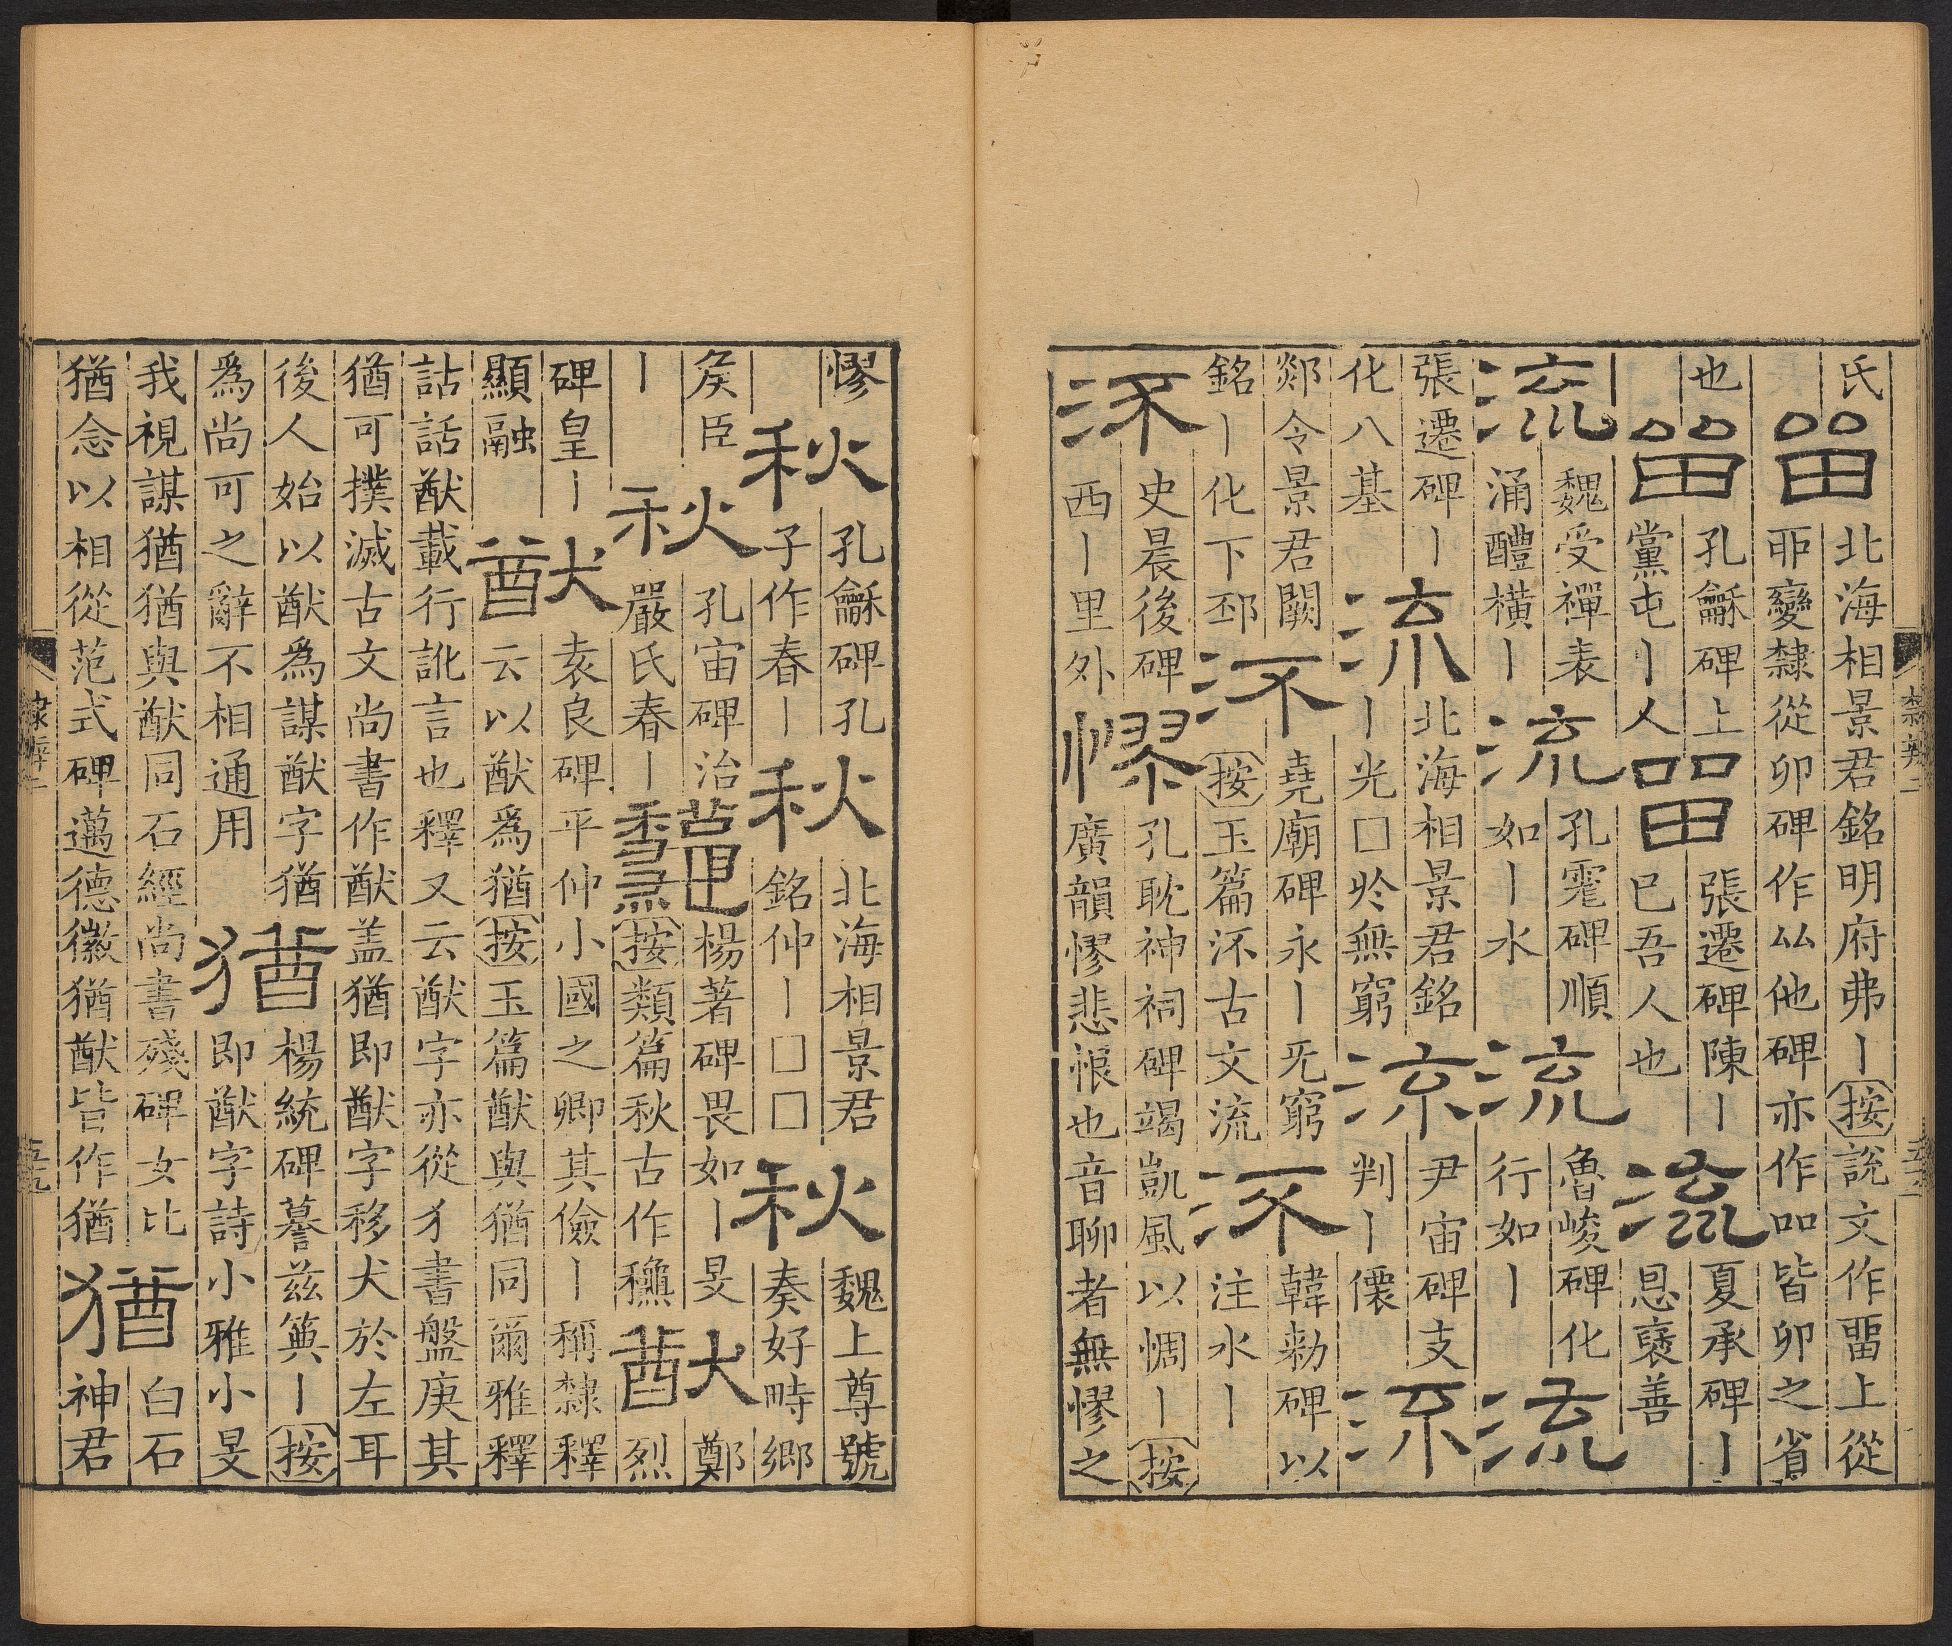 氏
畱
北海相景君銘明府弗丨按說文作畱上從
丣變隸從卯碑作厸他碑亦作吅皆卯之省
也
畱
孔龢碑上
黨屯丨人
畱
張遷碑陳丨
巳吾人也
流
夏承碑丨
恩襃善
流
魏受禪表
涌醴橫丨
流
孔宙碑順
如丨水
流
魯峻碑化
行如丨
流
張遷碑丨
化八基
流
北海相景君銘
丨光□於無窮
流
尹宙碑支
判丨僊
流
郯令景君闕
銘丨化下邳
㳅
堯廟碑永丨旡窮
按玉篇㳅古文流
㳅
韓勑碑以
注水丨
㳅
史晨後碑
西丨里外
憀
孔耽神祠碑竭凱風以惆丨按
廣韻憀悲恨也音聊者無憀之
隸辨二
憀
秋
孔龢碑孔
子作春丨
秋
北海相景君
銘仲丨□□
秋
魏上尊號
奏好畤鄉
矦臣
丨
秋
孔宙碑治
嚴氏春丨
龝
楊著碑畏如丨旻
按類篇秋古作龝
猷
鄭
烈
碑皇丨
顯融
猷
袁良碑平仲小國之卿其儉丨稱隸釋
云以猷爲猶按玉篇猷與猶同爾雅釋
詁話猷載行訛言也釋又云猷字亦從犭書盤庚其
猶可撲滅古文尚書作猷盖猶即猷字移犬於左耳
後人始以猷爲謀猷字猶
爲尚可之辭不相通用
猶
楊統碑摹兹丨按
即猷字詩小雅小旻
我視謀猶猶與猷同石經尚書殘碑女比
猶念以相從范式碑邁德徽猶猷皆作猶
猶
白石
神君
隸辨二
五九